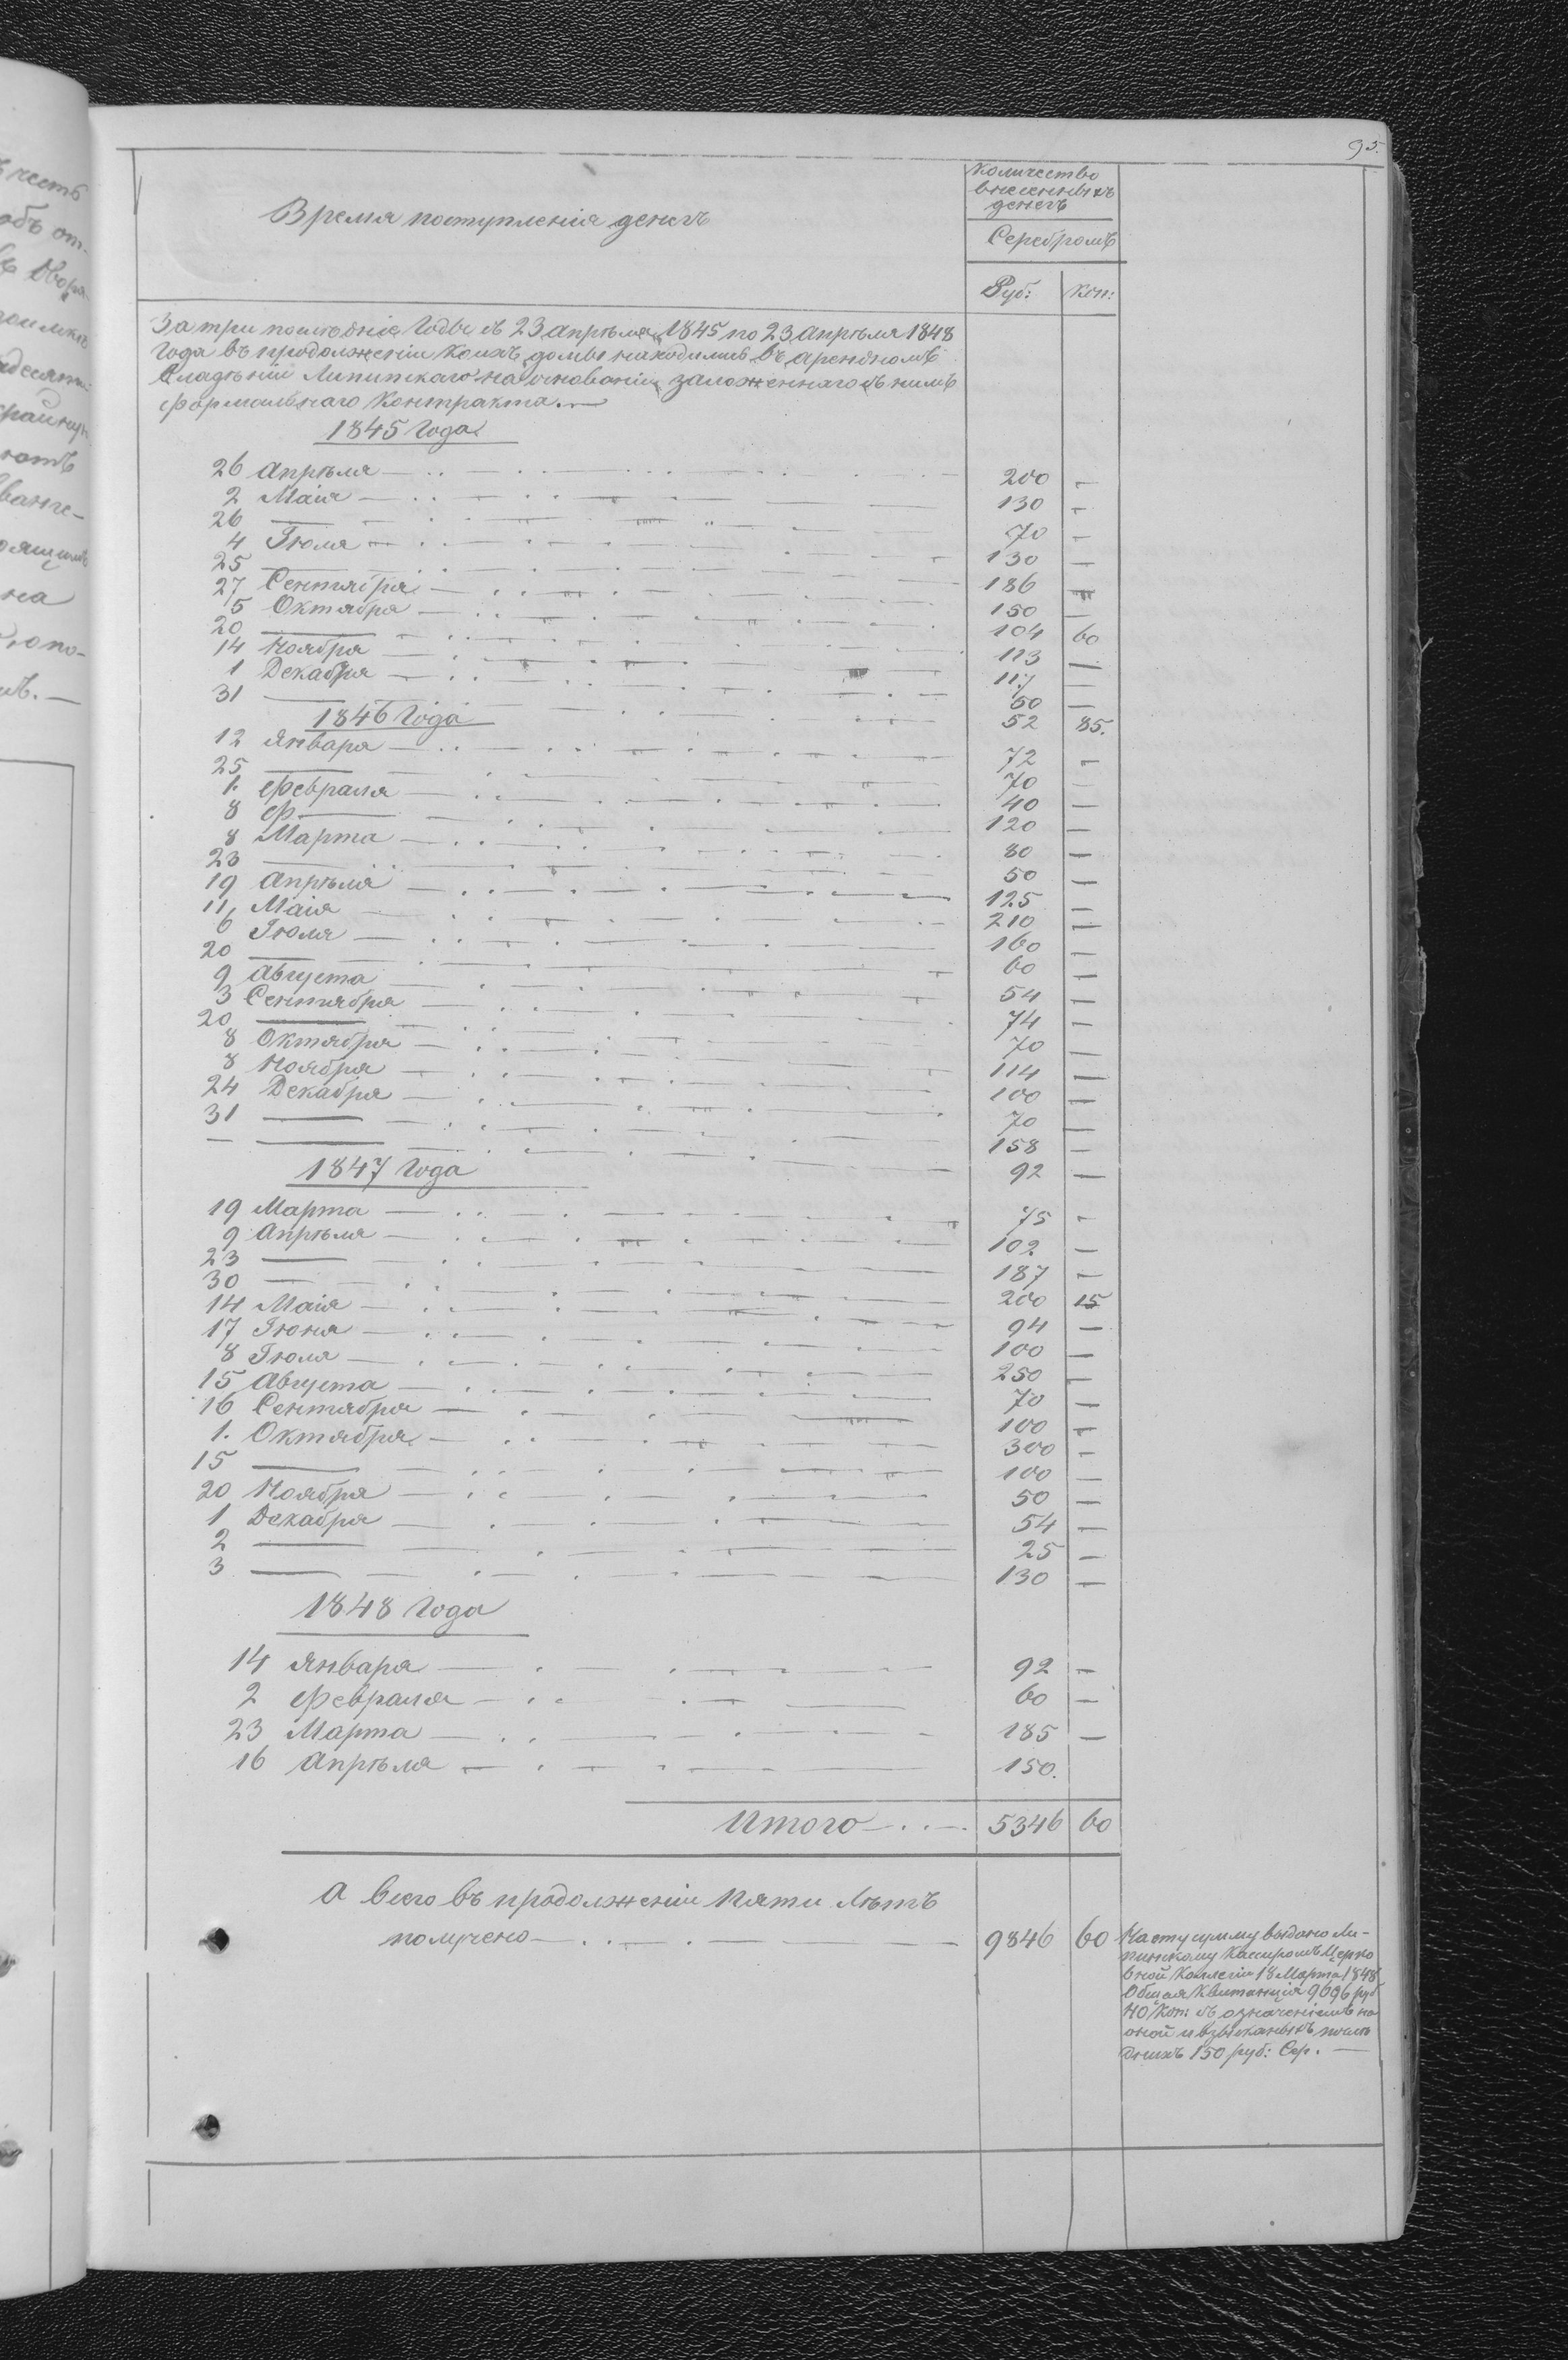 95.
Время поступленія денегъ
Количество
внесенныхъ
денегъ
Серебромъ
Руб: Коп:
За три последніе Года съ 23 апрѣля 1845 по 23 апрѣля 1848
года въ продолженіи коихъ домы находились въ арендномъ
Владѣніи Липинскаго на основаніи заложеннаго съ нимъ
формальнаго Контракта. —
1845 Года
26 Апрѣля — 200 —
2 Маія — 130 —
26 — 70 —
4 Іюля — 130 —
25 — 186 —
27 Сентября — 150 —
5 Октября — 104 60
20 — 113 —
14 Ноября — 117 —
1 Декабря — 50 —
31 — 52 85.
1846 Года
12 Января — 72 —
25 — 70 —
1. Февраля — 40 —
8 Ф — 120 —
8 Марта — 80 —
23 — 50 —
19 Апрѣля — 125 —
11 Маія — 210 —
6 Іюля — 160 —
20 — 60 —
9 Августа — 54 —
3 Сентября — 74 —
20 — 70 —
8 Октября — 114 —
8 Ноября — 100 —
24 Декабря — 70 —
31 — 158 —
— — 92 —
1847 Года
19 Марта — 75 —
9 Апрѣля — 102 —
23 — 187 —
30 — 200 15
14 Маія — 94 —
17 Іюня — 100 —
8 Іюля — 250 —
15 Августа — 70 —
16 Сентября — 100 —
1. Октября — 300 —
15 — 100 —
20 Ноября — 50 —
1 Декабря — 54 —
2 — 25 —
3 — 130 —
1848 Года
14 Января — 92 —
2 Февраля — 60 —
23 Марта — 185 —
16 Апрѣля — 150.
Итого — 5346 60
А всего въ продолженіи пяти лѣтъ
получено — 9846 60
На эту сумму выдано Ли-
пинскому Кассиромъ Церко
вной Коллегіи 18 Марта 1848
Общая Квитанція 9696 руб
40 Коп: съ означеніемъ на
оной и взысканыхъ послѣ
днихъ 150 руб: Сер. —